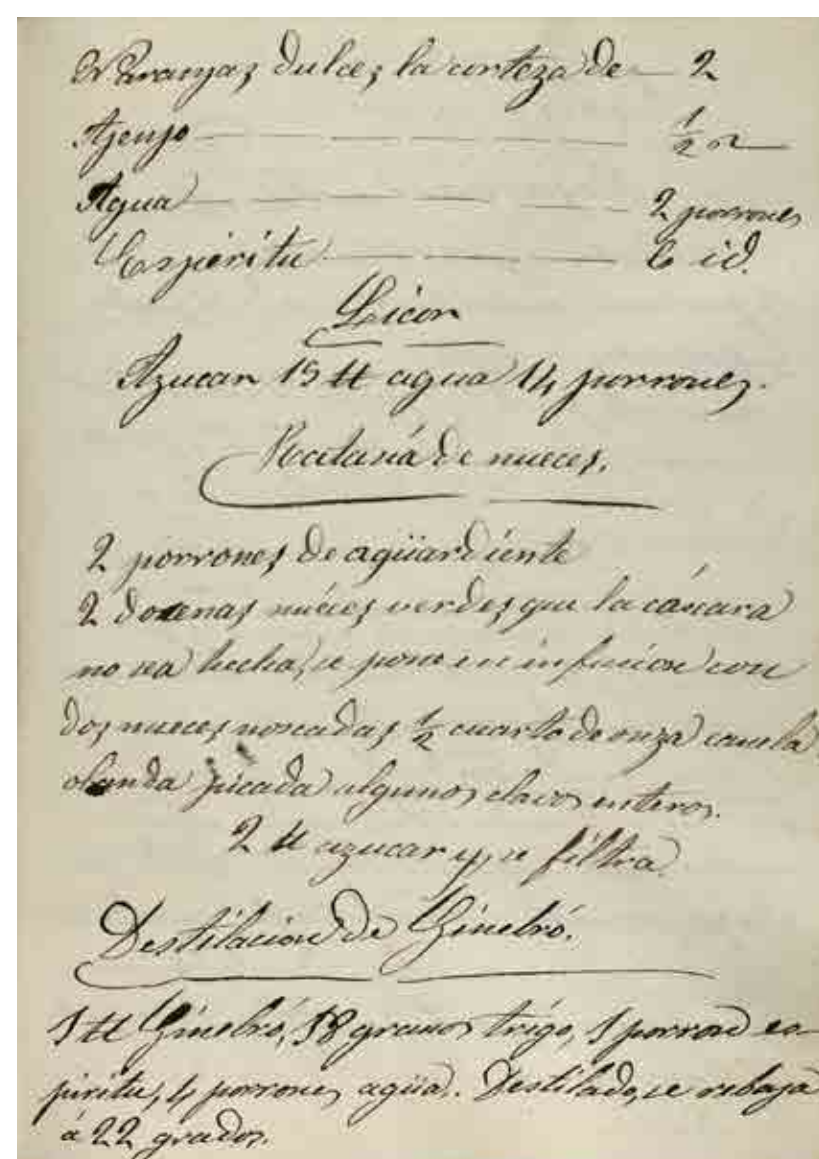 Naranjas dulces la corteza de — 2
Ajenjo — — — — ½ on
Agua — — — — 2 porrones
Espiritu — — — — 6 id.
Licor
Azucar 15 tt agua 14 porrones.
Ratasiá de nueces.
2 porrones de agüardiente
2 docenas nuéces verdes que la cáscara
no sea hecha, se pone en infusion con
dos nueces noscadas ½ cuarto de onza canela
olanda picada algunos clavos enteros.
2 tt azucar y se filtra.
Destilacion de Ginebró.
1 tt Ginebró, 18 granos trigo, 1 porron es-
piritu, 4 porrones agüa. Destilado, se rebaja
á 22 grados.